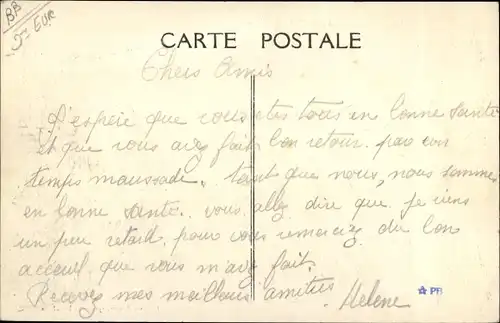 BB
5- EUR
CARTE POSTALE
Chers Amis
J'espère que vous êtes tous en bonne santé
et que vous avez fait bon retour. par ce
temps maussade. tant que nous, nous sommes
en bonne santé. vous allez dire que je viens
un peu retard pour vous remerciez du bon
acceuil que vous m'avez fait.
Recevez mes meilleurs amitiés
Helene
PB